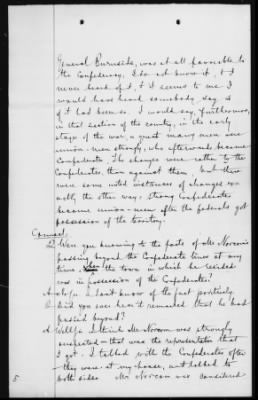 General Burnside, was at all favorable to
the Confederacy, I do not know it, & I
never heard of it, & it seems to me I
would have heard somebody say so
if it had been so. I would say furthermore,
in that section of the country, in the early
stage of the war, a great many men were
union-men strongly, who afterwards became
Confederate. The changes were rather to the
Confederates, than against them, but there
were some noted instances of changes ex-
actly the other way; strong Confederates
became union-men after the federals got
possession of the territory.
Counsel:
Q. Were you knowing to the facts of Mr Norcom's
passing beyond the Confederate lines at any
time, when the town in which he resided
was in possession of the Confederates?
A. No/a I don't know of the fact positively.
Q. Did you ever hear it remarked that he had
passed beyond?
A. Well/a I think Mr Norcom was strongly
suspected - that was the representation that
I got. I talked with the Confederates often
- they were at my house, and talked to
both sides. Mr Norcom was considered
5